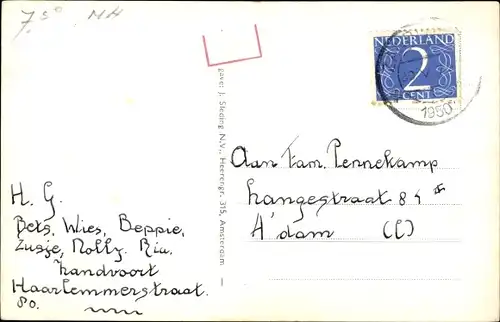 7,50 MH
NEDERLAND
2
CENT
1950
gave: J. Sleding N.V., Heerengr. 315, Amsterdam
Aan Fam. Pennekamp
Langestraat 84
A'dam (C)
H. G.
Bets, Wies, Beppie,
Zusje, Nolly. Ria.
Zandvoort
Haarlemmerstraat.
80.